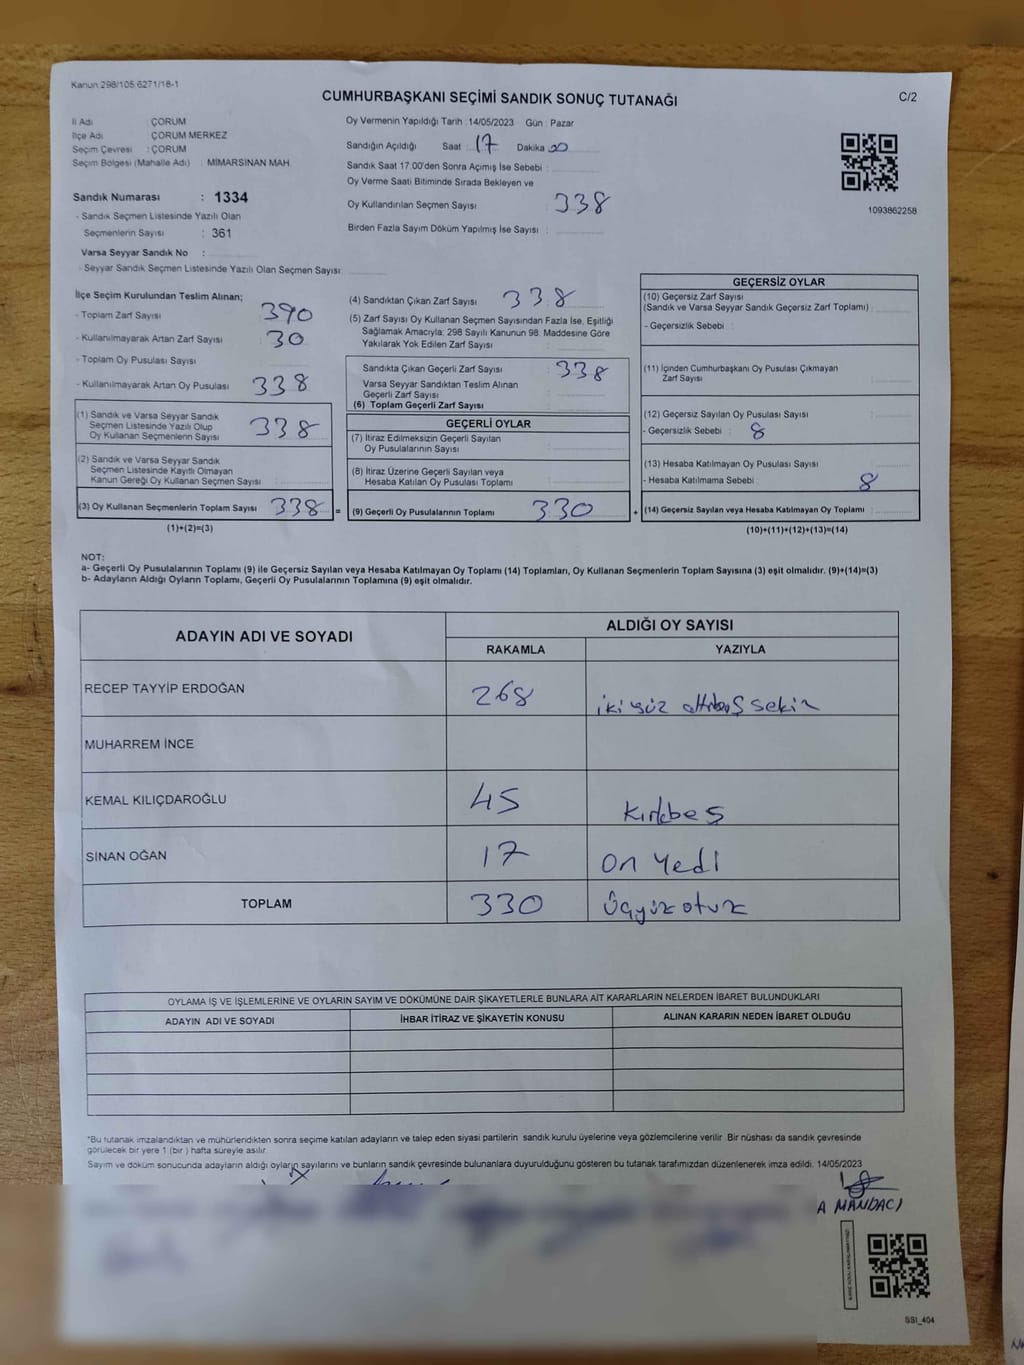 Kanun 298/105 6271/18-1
CUMHURBAŞKANI SEÇİMİ SANDIK SONUÇ TUTANAĞI
C/2
İl Adı : ÇORUM
İlçe Adı : ÇORUM MERKEZ
Seçim Çevresi : ÇORUM
Seçim Bölgesi (Mahalle Adı) : MİMARSİNAN MAH.
Sandık Numarası : 1334
- Sandık Seçmen Listesinde Yazılı Olan
Seçmenlerin Sayısı : 361
Varsa Seyyar Sandık No :
- Seyyar Sandık Seçmen Listesinde Yazılı Olan Seçmen Sayısı:
Oy Vermenin Yapıldığı Tarih : 14/05/2023 Gün : Pazar
Sandığın Açıldığı Saat : 17 Dakika 00
Sandık Saat 17.00'den Sonra Açımış İse Sebebi :
Oy Verme Saati Bitiminde Sırada Bekleyen ve
Oy Kullandırılan Seçmen Sayısı : 338
Birden Fazla Sayım Döküm Yapılmış İse Sayısı :
1093862258
İlçe Seçim Kurulundan Teslim Alınan;
- Toplam Zarf Sayısı 390
- Kullanılmayarak Artan Zarf Sayısı 30
- Toplam Oy Pusulası Sayısı
- Kullanılmayarak Artan Oy Pusulası 338
(1) Sandık ve Varsa Seyyar Sandık
Seçmen Listesinde Yazılı Olup
Oy Kullanan Seçmenlerin Sayısı 338
(2) Sandık ve Varsa Seyyar Sandık
Seçmen Listesinde Kayıtlı Olmayan
Kanun Gereği Oy Kullanan Seçmen Sayısı
(3) Oy Kullanan Seçmenlerin Toplam Sayısı 338 =
(1)+(2)=(3)
(4) Sandıktan Çıkan Zarf Sayısı 338
(5) Zarf Sayısı Oy Kullanan Seçmen Sayısından Fazla İse, Eşitliği
Sağlamak Amacıyla; 298 Sayılı Kanunun 98. Maddesine Göre
Yakılarak Yok Edilen Zarf Sayısı :
Sandıkta Çıkan Geçerli Zarf Sayısı : 338
Varsa Seyyar Sandıktan Teslim Alınan
Geçerli Zarf Sayısı :
(6) Toplam Geçerli Zarf Sayısı
GEÇERLİ OYLAR
(7) İtiraz Edilmeksizin Geçerli Sayılan
Oy Pusulalarının Sayısı :
(8) İtiraz Üzerine Geçerli Sayılan veya
Hesaba Katılan Oy Pusulası Toplamı :
(9) Geçerli Oy Pusulalarının Toplamı 330 +
GEÇERSİZ OYLAR
(10) Geçersiz Zarf Sayısı
(Sandık ve Varsa Seyyar Sandık Geçersiz Zarf Toplamı) :
- Geçersizlik Sebebi :
(11) İçinden Cumhurbaşkanı Oy Pusulası Çıkmayan
Zarf Sayısı :
(12) Geçersiz Sayılan Oy Pusulası Sayısı :
- Geçersizlik Sebebi : 8
(13) Hesaba Katılmayan Oy Pusulası Sayısı :
- Hesaba Katılmama Sebebi : 8
(14) Geçersiz Sayılan veya Hesaba Katılmayan Oy Toplamı :
(10)+(11)+(12)+(13)=(14)
NOT:
a- Geçerli Oy Pusulalarının Toplamı (9) ile Geçersiz Sayılan veya Hesaba Katılmayan Oy Toplamı (14) Toplamları, Oy Kullanan Seçmenlerin Toplam Sayısına (3) eşit olmalıdır. (9)+(14)=(3)
b- Adayların Aldığı Oyların Toplamı, Geçerli Oy Pusulalarının Toplamına (9) eşit olmalıdır.
ADAYIN ADI VE SOYADI ALDIĞI OY SAYISI
RAKAMLA YAZIYLA
RECEP TAYYİP ERDOĞAN 268 iki yüz sekiz
MUHARREM İNCE
KEMAL KILIÇDAROĞLU 45 Kırkbeş
SİNAN OĞAN 17 On Yedi
TOPLAM 330 Üçyüz otuz
OYLAMA İŞ VE İŞLEMLERİNE VE OYLARIN SAYIM VE DÖKÜMÜNE DAİR ŞİKAYETLERLE BUNLARA AİT KARARLARIN NELERDEN İBARET BULUNDUKLARI
ADAYIN ADI VE SOYADI İHBAR İTİRAZ VE ŞİKAYETİN KONUSU ALINAN KARARIN NEDEN İBARET OLDUĞU
*Bu tutanak imzalandıktan ve mühürlendikten sonra seçime katılan adayların ve talep eden siyasi partilerin sandık kurulu üyelerine veya gözlemcilerine verilir. Bir nüshası da sandık çevresinde
görülecek bir yere 1 (bir ) hafta süreyle asılır.
Sayım ve döküm sonucunda adayların aldığı oyların sayılarını ve bunların sandık çevresinde bulunanlara duyurulduğunu gösteren bu tutanak tarafımızdan düzenlenerek imza edildi. 14/05/2023
A MANDACI
SSI_404